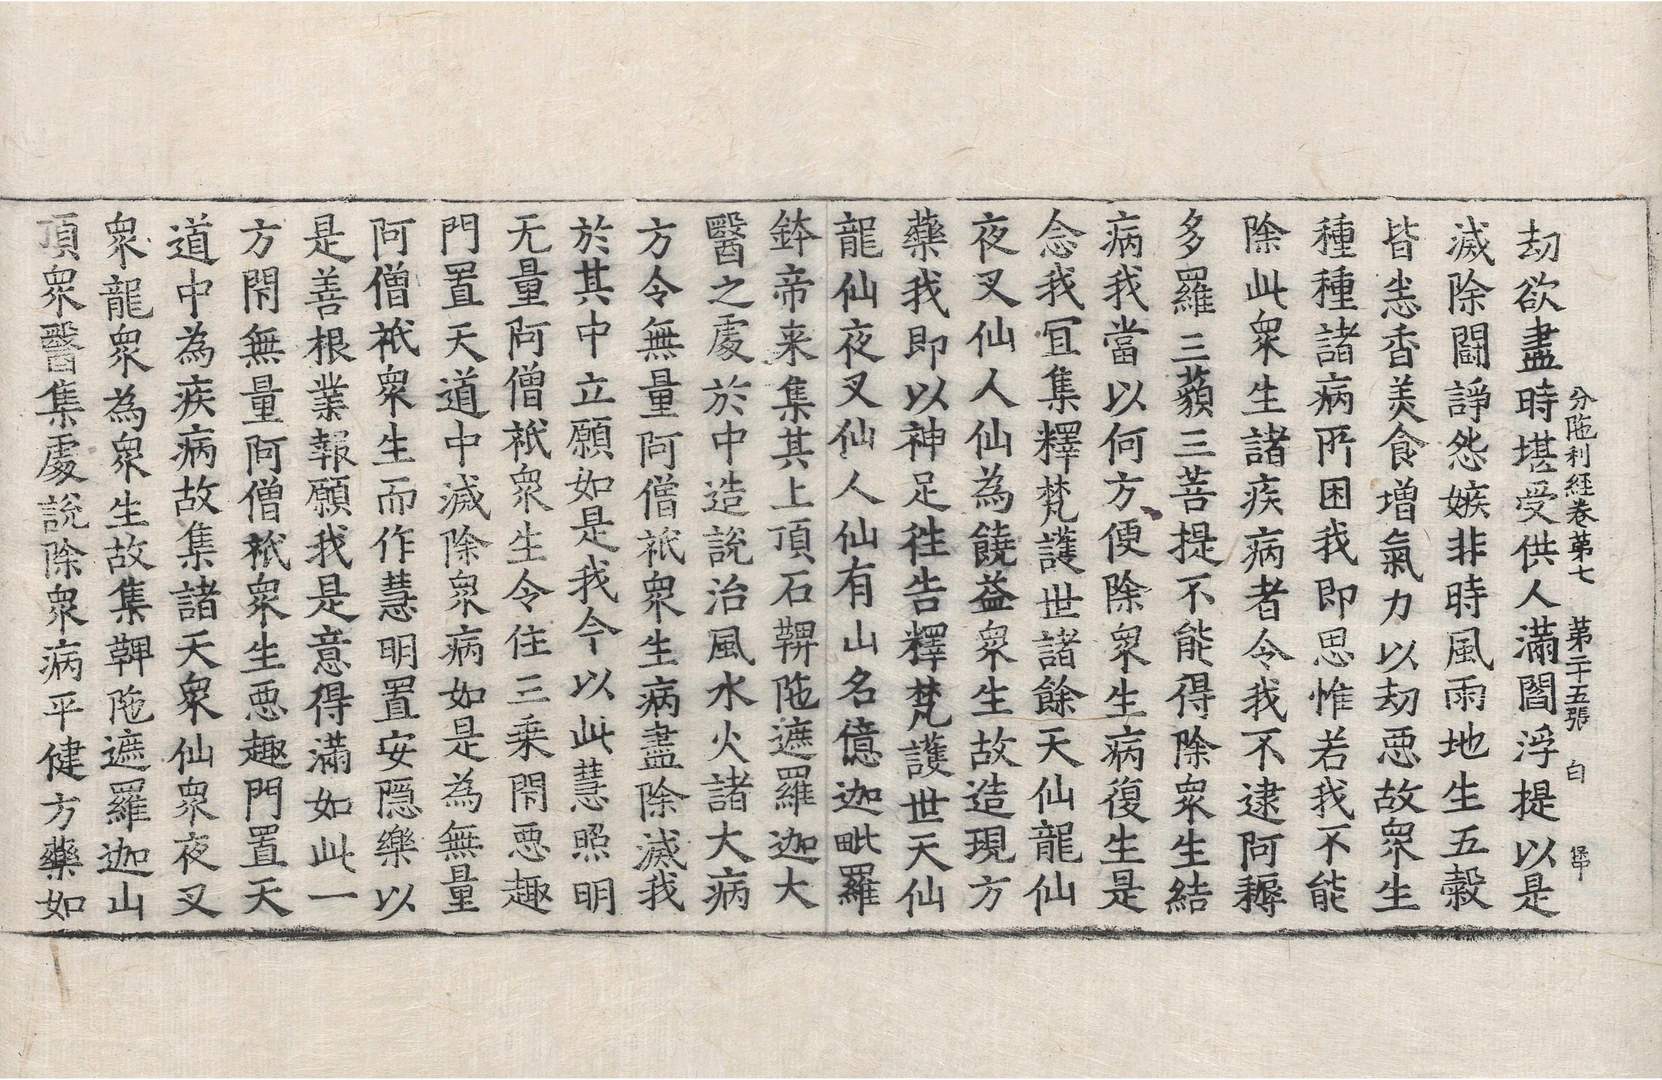 分陁利経卷第七　第二十五張　白
劫欲盡時堪受供人滿閻浮提以是
滅除鬪諍怨嫉非時風雨地生五穀
皆悉香美食增氣力以劫惡故衆生
種種諸病所困我即思惟若我不能
除此衆生諸疾病者令我不逮阿耨
多羅三藐三菩提不能得除衆生結
病我當以何方便除衆生病復生是
念我冝集釋梵護世諸餘天仙龍仙
夜叉仙人仙為饒益衆生故造現方
藥我即以神足往告釋梵護世天仙
龍仙夜叉仙人仙有山名億迦毗羅
鉢帝来集其上頂石鞞陁遮羅迦大
醫之處於中造說治風水火諸大病
方令無量阿僧祇衆生病盡除滅我
於其中立願如是我今以此慧照明
无量阿僧祇衆生令住三乘閇惡趣
門置天道中滅除衆病如是為無量
阿僧祇衆生而作慧明置安隱樂以
是善根業報願我是意得滿如此一
方閇無量阿僧祇衆生惡趣門置天
道中為疾病故集諸天衆仙衆夜叉
衆龍衆為衆生故集鞞陁遮羅迦山
頂衆醫集處說除衆病平健方藥如